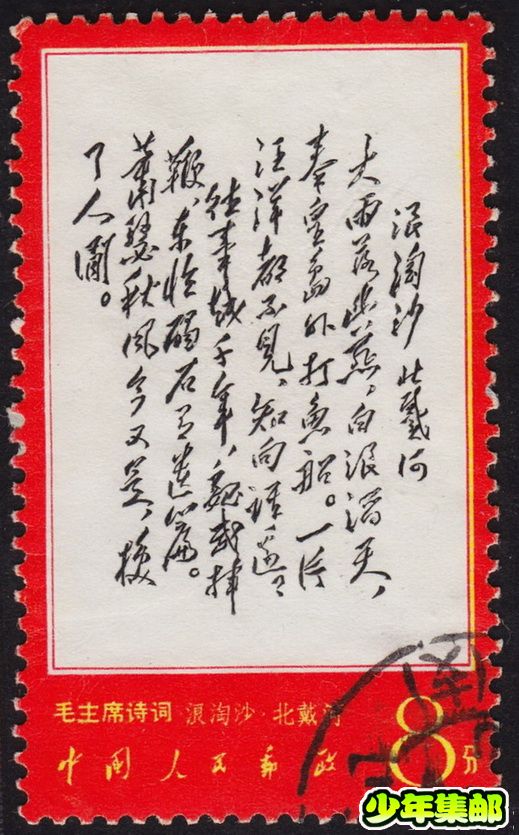 浪淘沙 北戴河
大雨落幽燕。白浪滔天,
秦皇島外打魚船。一片
汪洋都不見,知向誰邊
往事越千年,魏武揮
鞭,东临碣石有遗篇。
萧瑟秋风今又是,换
了人间。
毛主席诗词 浪淘沙·北戴河
中国人民邮政
8分
少年集邮